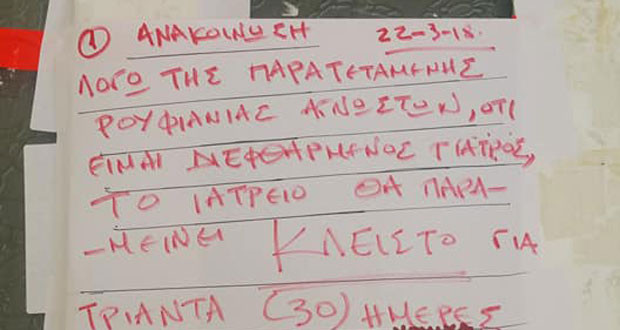 ① ΑΝΑΚΟΙΝΩΣΗ 22-3-18.
ΛΟΓΩ ΤΗΣ ΠΑΡΑΤΕΤΑΜΕΝΗΣ
ΡΟΥΦΙΑΝΙΑΣ ΑΓΝΩΣΤΩΝ, ΟΤΙ
ΕΙΜΑΙ ΔΙΕΦΘΑΡΜΕΝΟΣ ΓΙΑΤΡΟΣ,
ΤΟ ΙΑΤΡΕΙΟ ΘΑ ΠΑΡΑ-
-ΜΕΙΝΕΙ ΚΛΕΙΣΤΟ ΓΙΑ
ΤΡΙΑΝΤΑ (30) ΗΜΕΡΕΣ